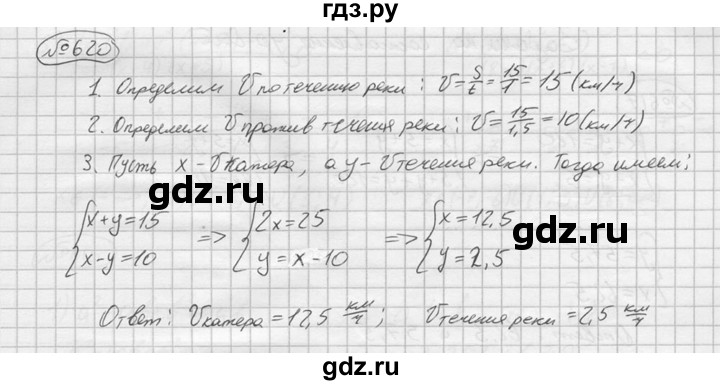 гдз.ру
№620
1. Определим V по течению реки: V = S/t = 15/1 = 15 (км/ч)
2. Определим V против течения реки: V = 15/1,5 = 10 (км/ч)
3. Пусть x - V катера, а y - V течения реки. Тогда имеем:
{x+y=15 => {2x=25 => {x=12,5
{x-y=10 {y=x-10 {y=2,5
Ответ: V катера = 12,5 км/ч; V течения реки = 2,5 км/ч
gdz.ru gdz.ru gdz.ru